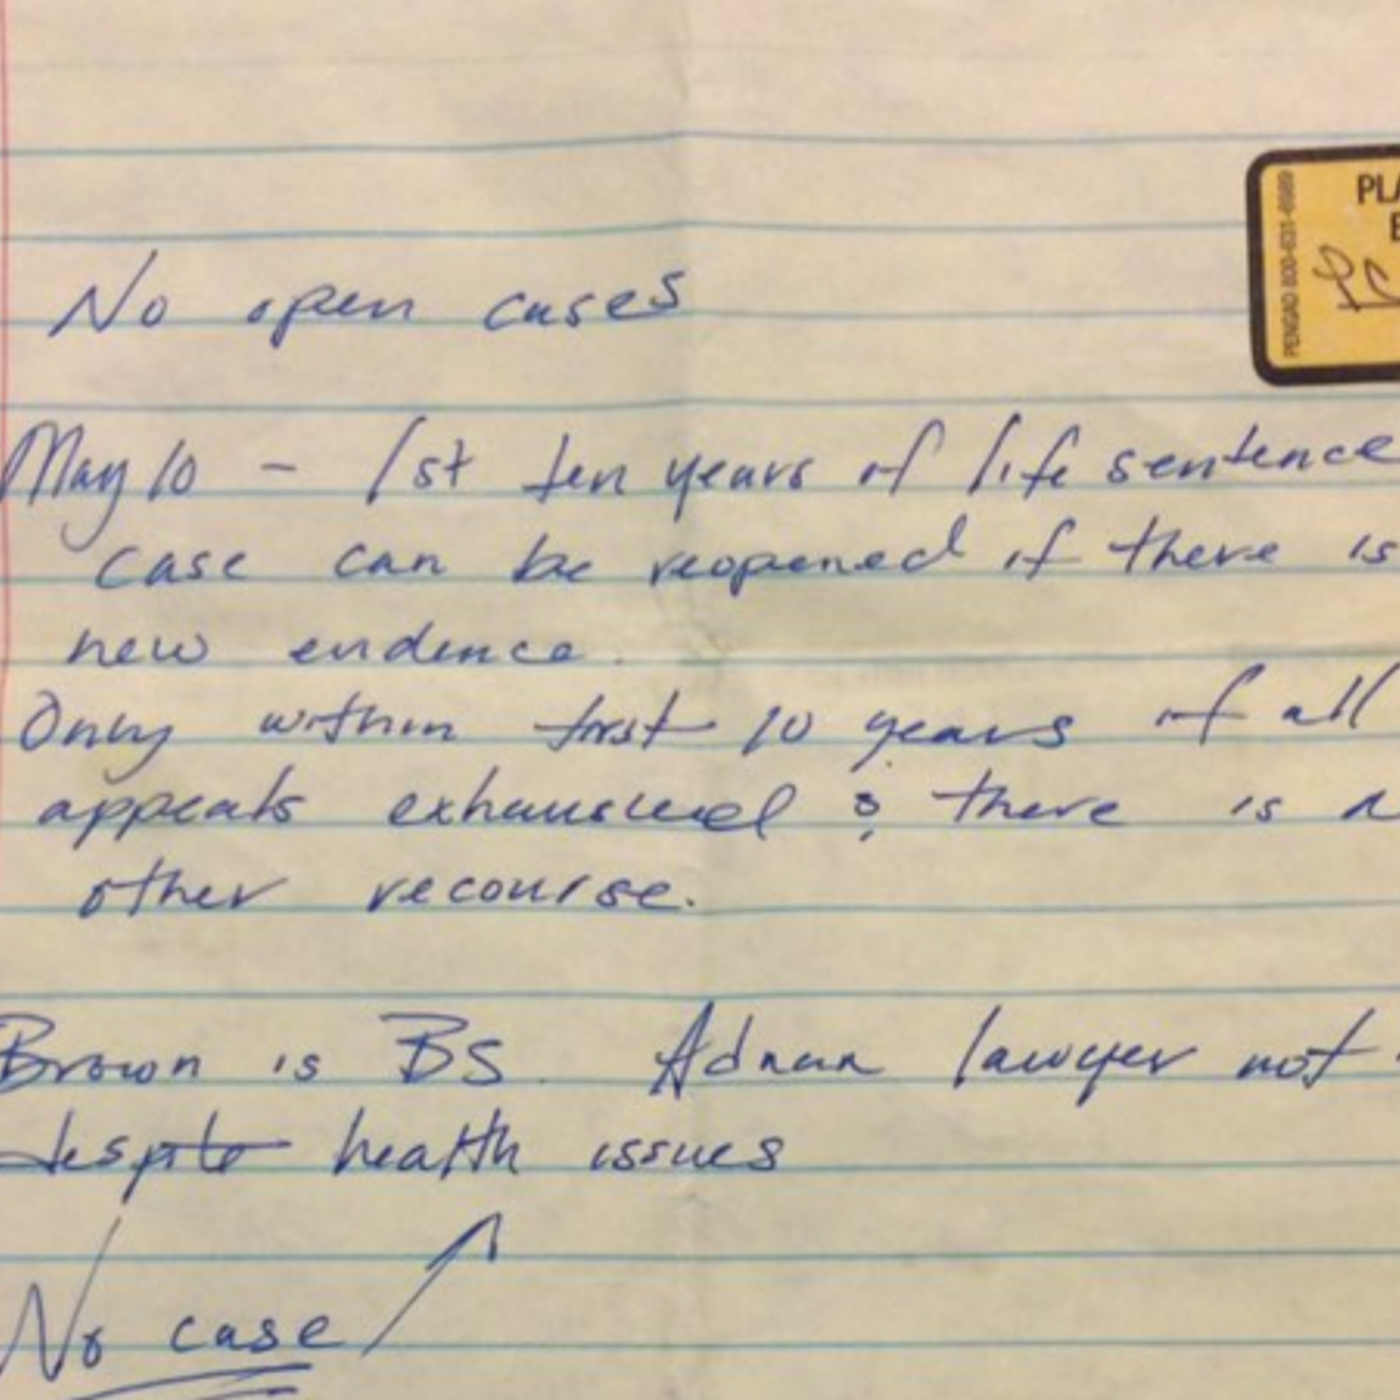 No open cases
PLA
E
PENGAD 800-631-6989
May 10 - 1st ten years of life sentence
case can be reopened if there is
new evidence.
Only within first 10 years if all
appeals exhausted & there is n
other recourse.
Brown is BS. Adnan lawyer not
despite health issues
No case